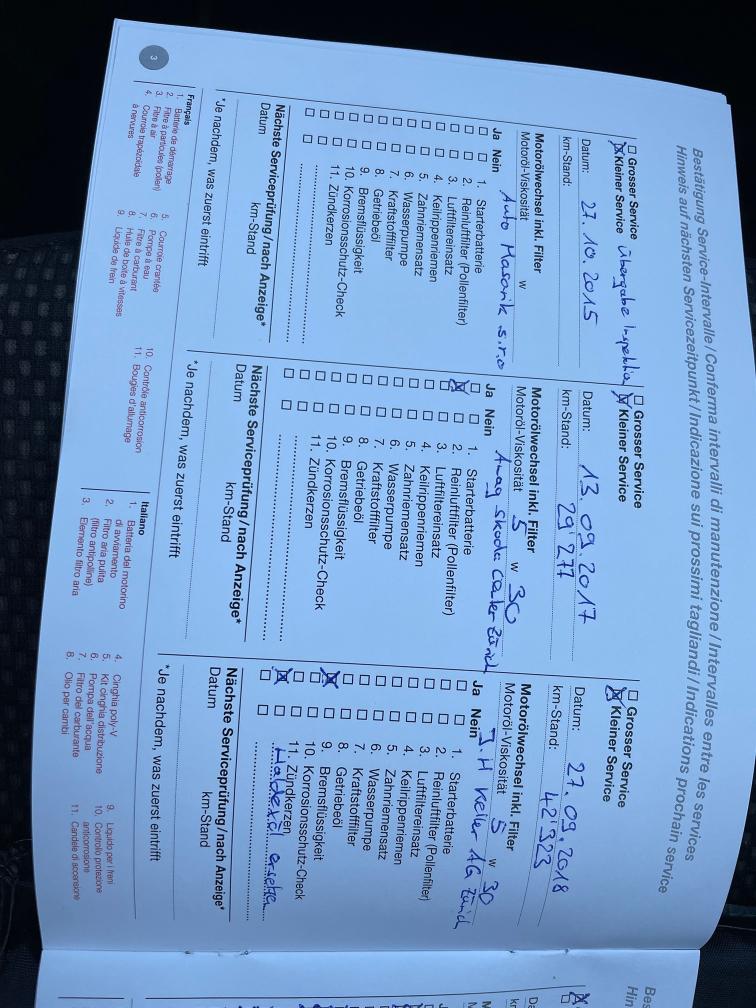 Bestätigung Service-Intervalle / Conferma intervalli di manutenzione / Intervalles entre les services
Hinweis auf nächsten Servicezeitpunkt / Indicazione sui prossimi tagliandi / Indications prochain service
Grosser Service
Kleiner Service Übergabe Inspektion
Datum: 27.10.2015
km-Stand:
Motorölwechsel inkl. Filter
Motoröl-Viskosität w
Auto Masarik s.r.o
Ja Nein
1. Starterbatterie
2. Reinluftfilter (Pollenfilter)
3. Luftfiltereinsatz
4. Keilrippenriemen
5. Zahnriemensatz
6. Wasserpumpe
7. Kraftstofffilter
8. Getriebeöl
9. Bremsflüssigkeit
10. Korrosionsschutz-Check
11. Zündkerzen
Nächste Serviceprüfung/nach Anzeige*
Datum km-Stand
*Je nachdem, was zuerst eintrifft
Grosser Service
Kleiner Service
Datum: 13.09.2017
km-Stand: 29'277
Motorölwechsel inkl. Filter
Motoröl-Viskosität 5 w 30
Amag Skoda Center Zürich
Ja Nein
1. Starterbatterie
2. Reinluftfilter (Pollenfilter)
3. Luftfiltereinsatz
4. Keilrippenriemen
5. Zahnriemensatz
6. Wasserpumpe
7. Kraftstofffilter
8. Getriebeöl
9. Bremsflüssigkeit
10. Korrosionsschutz-Check
11. Zündkerzen
Nächste Serviceprüfung/nach Anzeige*
Datum km-Stand
*Je nachdem, was zuerst eintrifft
Grosser Service
Kleiner Service
Datum: 27.09.2018
km-Stand: 42'323
Motorölwechsel inkl. Filter
Motoröl-Viskosität 5 w 30
J.H Keller AG Zürich
Ja Nein
1. Starterbatterie
2. Reinluftfilter (Pollenfilter)
3. Luftfiltereinsatz
4. Keilrippenriemen
5. Zahnriemensatz
6. Wasserpumpe
7. Kraftstofffilter
8. Getriebeöl
9. Bremsflüssigkeit
10. Korrosionsschutz-Check
11. Zündkerzen
Haldexöl ersetzen
Nächste Serviceprüfung/nach Anzeige*
Datum km-Stand
*Je nachdem, was zuerst eintrifft
Français
1. Batterie de démarrage
2. Filtre à particules (pollen)
3. Filtre à air
4. Courroie trapézoïdale
à nervures
5. Courroie crantée
6. Pompe à eau
7. Filtre à carburant
8. Huile de boîte à vitesses
9. Liquide de frein
10. Contrôle anticorrosion
11. Bougies d'allumage
Italiano
1. Batteria del motorino
di avviamento
2. Filtro aria pulita
(filtro antipolline)
3. Elemento filtro aria
4. Cinghia poly-V
5. Kit cinghia distribuzione
6. Pompa dell'acqua
7. Filtro del carburante
8. Olio per cambi
9. Liquido per i freni
10. Controllo protezione
anticorrosione
11. Candele di accensione
3